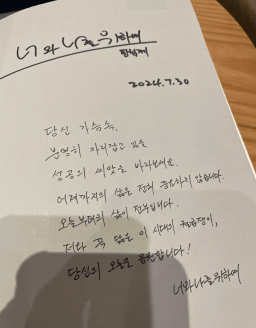 너와 나를 위하여
2024.7.30
당신 가슴속,
분명히 자리잡고 있을
성공의 씨앗을 바라보세요.
어제까지의 삶은 전혀 중요하지 않습니다.
오늘부터의 삶이 전부입니다.
저와 꼭 닮은 이 시대의
당신의 오늘을 응원합니다!
너와 나를 위하여